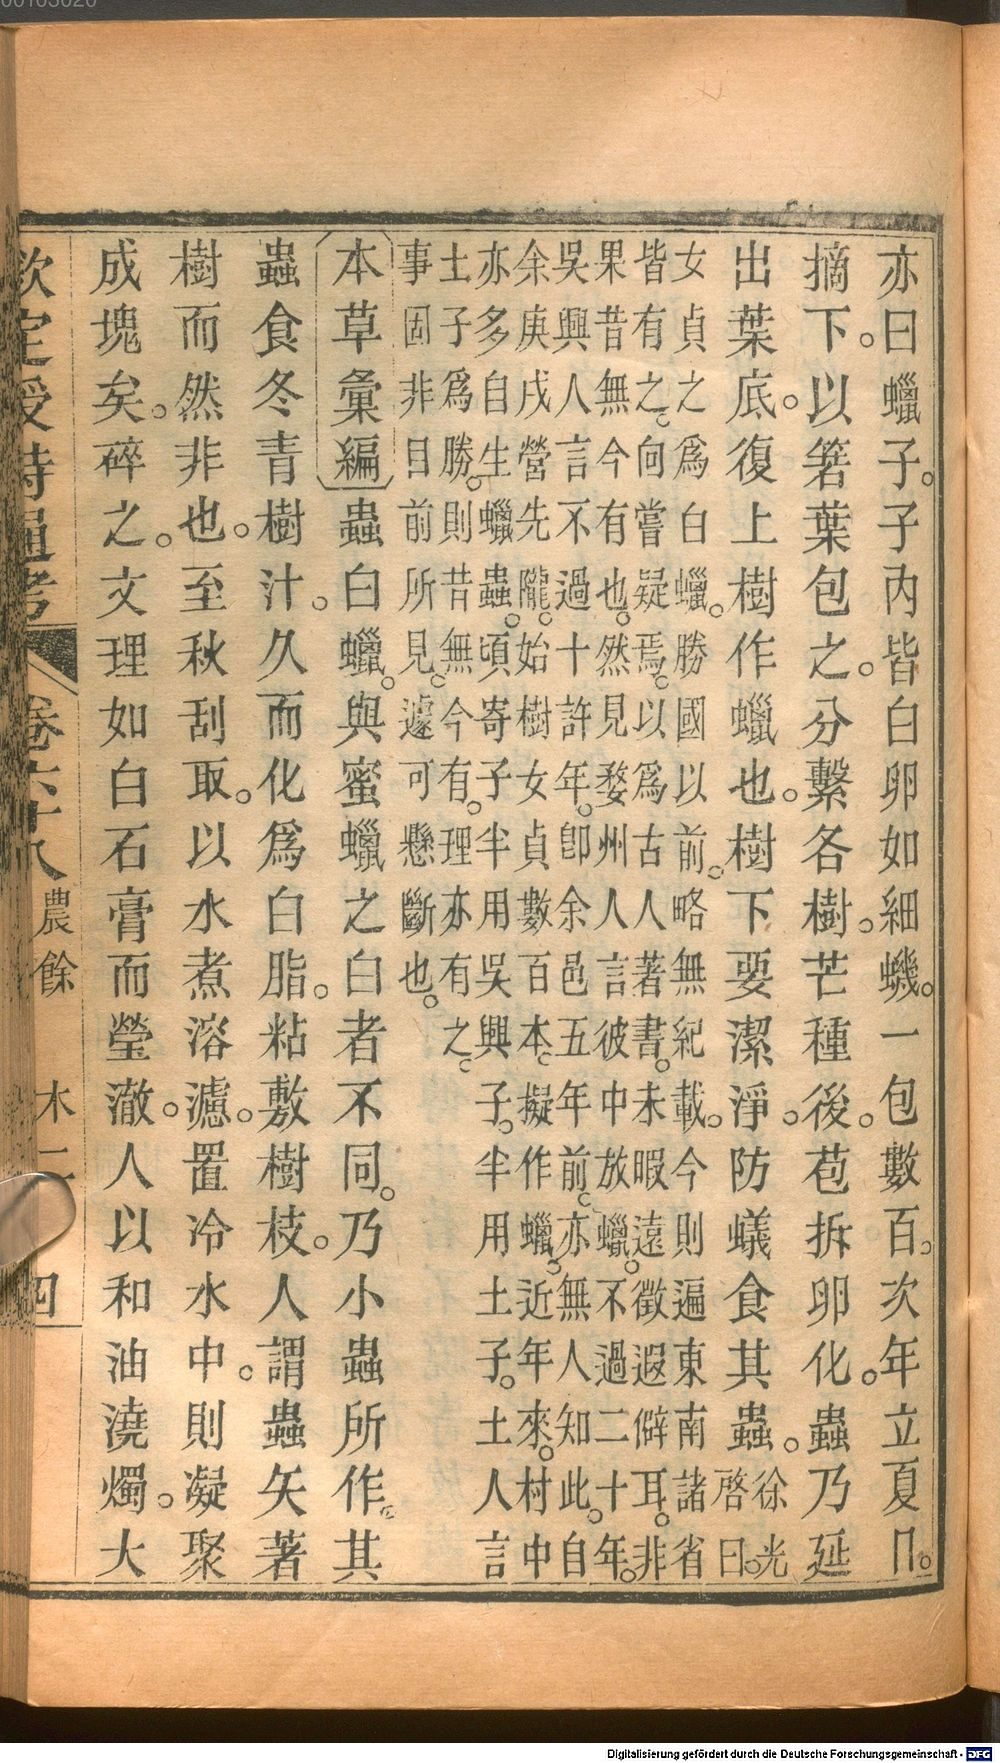 亦曰蠟子。子內皆白卵如細蟣。一包數百。次年立夏日。
摘下。以箬葉包之。分繫各樹。芒種後。苞拆卵化。蟲乃延
出葉底。復上樹作蠟也。樹下要潔淨。防蟻食其蟲。徐光
啓曰。
女貞之爲白蠟。勝國以前。略無紀載。今則遍東南諸省
皆有之。向嘗疑焉。以爲古人著書。未暇遠徵遐僻耳。非
果昔無今有也。然見婺州人言彼中放蠟。不過二十年。
吳興人言不過十許年。卽余邑五年前。亦無人知此。自
余庚戌營先隴。始樹女貞數百本。擬作蠟。近年來。村中
亦多自生蠟蟲。頃寄子半用吳興子。半用土子。土人言
土子爲勝。則昔無今有。理亦有之。
事固非目前所見。遽可懸斷也。
本草彙編 蟲白蠟。與蜜蠟之白者不同。乃小蟲所作。其
蟲食冬青樹汁。久而化爲白脂。粘敷樹枝。人謂蟲矢著
樹而然非也。至秋刮取。以水煮溶濾。置冷水中。則凝聚
成塊矣。碎之。文理如白石膏而瑩澈。人以和油澆燭。大
欽定授時通考 卷六十八 農餘 木二 四
00103020
Digitalisierung gefördert durch die Deutsche Forschungsgemeinschaft - DFG